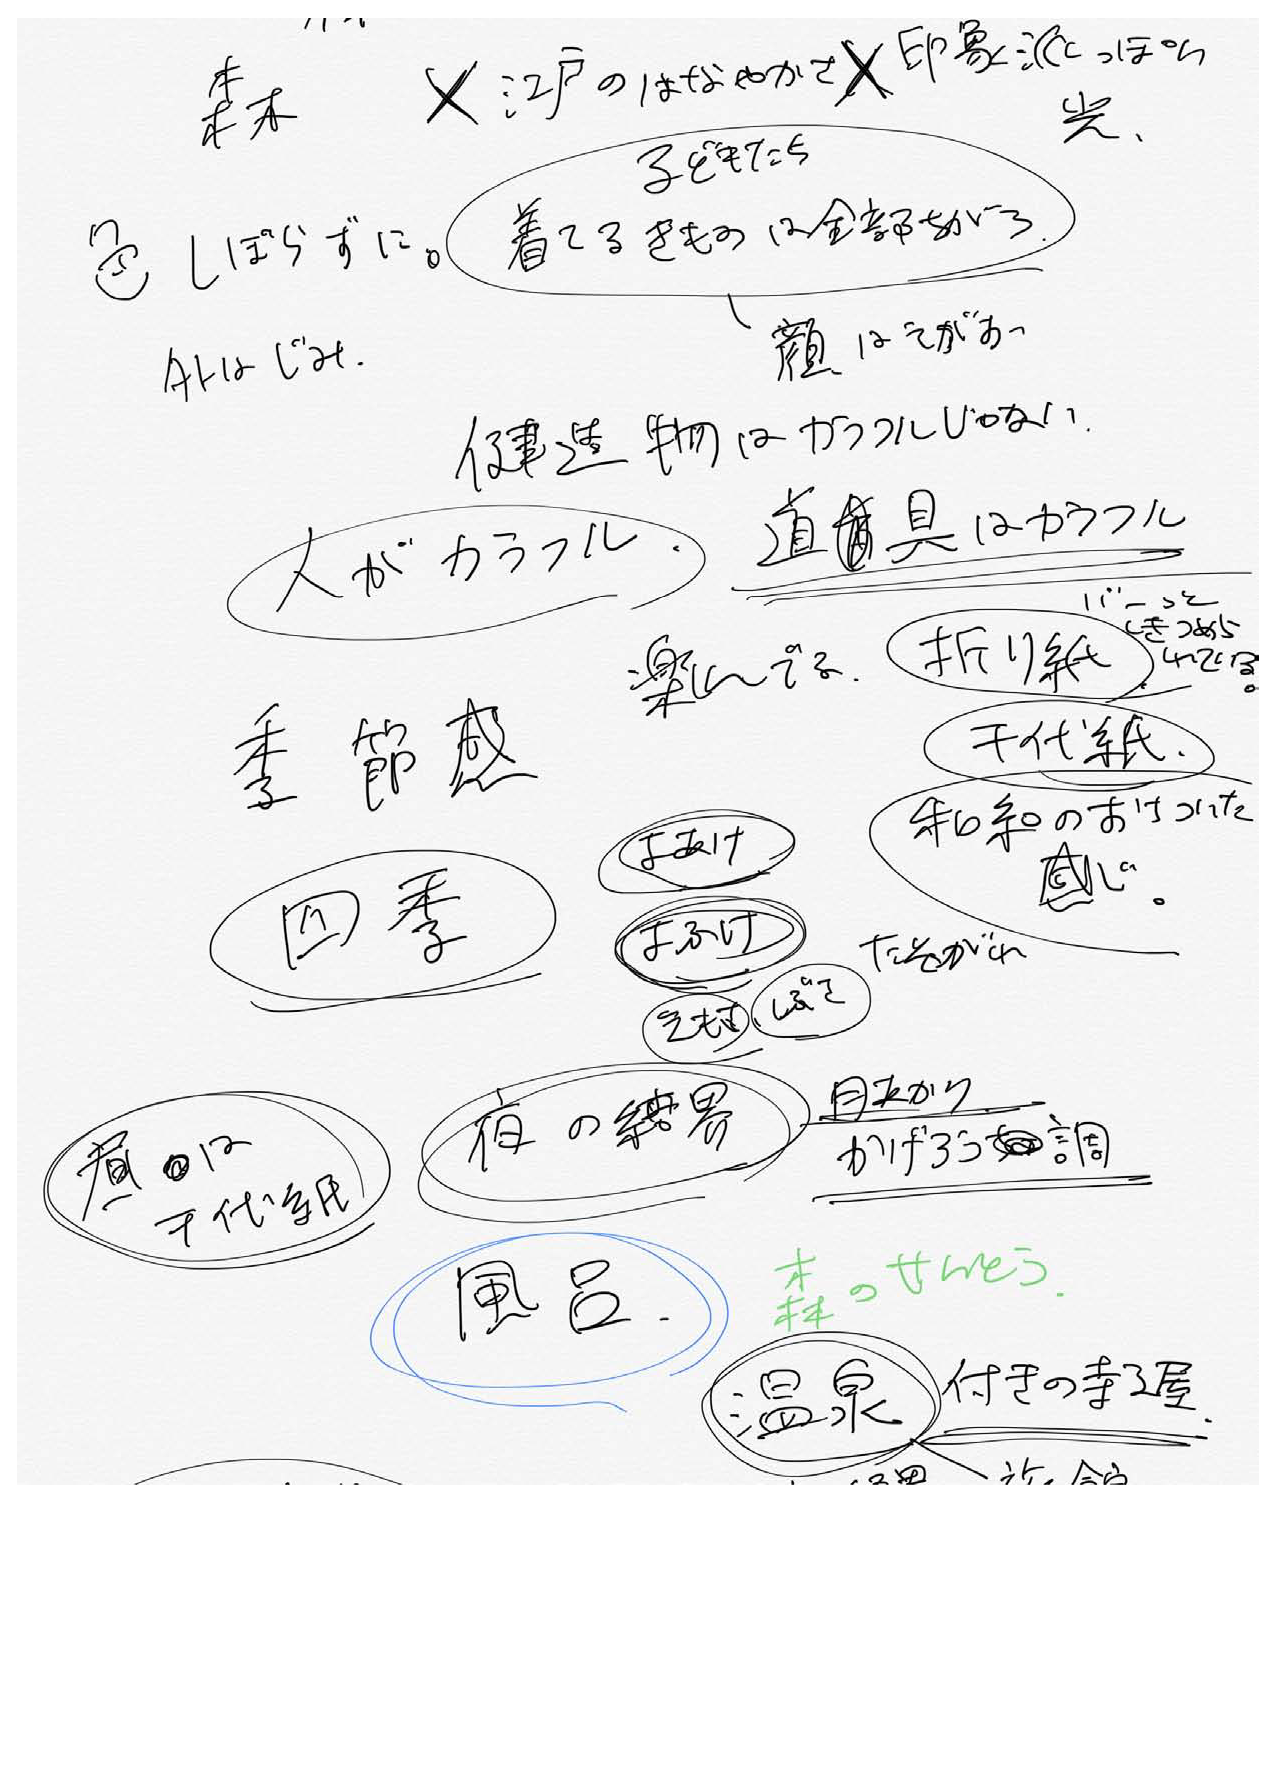 森 × 江戸のはなやかさ × 印象派っぽい
光、
子どもたち
しばらずに。 着てるきものは全部ちがう
顔はえがおっ
外はじみ.
建造物はカラフルじゃない.
人がカラフル. 道具はカラフル
バーっと
しきつめら
れている。
楽しんでる. 折り紙
季節感 千代紙.
和紙のおけついた
感じ。
よあけ
四季
よふけ
たそがれ
夜の結界
かげろう 調
は
千代紙
風呂.
森のせんとう.
温泉 付きの寺子屋.